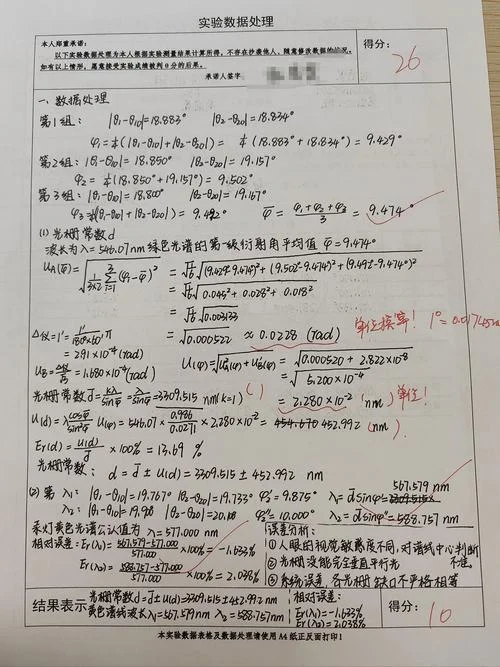 实验数据处理
本人郑重承诺:
以下实验数据处理为本人根据实验测量结果计算所得,不存在抄袭他人、随意修改数据的情况。
如有以上情形,愿意接受实验成绩被判0分的后果。
承诺人签字
得分:
26
一、数据处理
第1组: |θ1-θ10|=18.883° |θ2-θ20|=18.834°
φ1=¼(|θ1-θ10|+|θ2-θ20|) = ¼(18.883°+18.834°) = 9.429°
第2组: |θ1-θ10|=18.850° |θ2-θ20|=19.157°
φ2=¼(18.850°+19.157°)=9.502°
第3组: |θ1-θ10|=18.800° |θ2-θ20|=19.157°
φ3=¼(|θ1-θ10|+|θ2-θ20|) = 9.492° φ̄=(φ1+φ2+φ3)/3 = 9.474°
(1) 光栅常数d
波长为λ=546.07nm绿色光谱的第一级衍射角平均值 φ̄=9.474°
UA(φ̄)=√(1/(3×2) Σ(φi-φ̄)²) = √⅙ √((9.429°-9.474°)²+(9.502°-9.474°)²+(9.492°-9.474°)²)
= √⅙ √(0.045²+0.028²+0.018²)
= √⅙ √0.003133
= √0.000522 ≈ 0.0228 (rad)
单位换算! 1°=0.01745
Δ仪=1'=1/(180×60)π
=2.91×10⁻⁴(rad)
UB=Δ仪/√3=1.680×10⁻⁴(rad)
U(φ)=√(UA²(φ)+UB²(φ)) = √(0.000520+2.822×10⁻⁸)
= √(5.200×10⁻⁴)
= 2.280×10⁻² (nm) 单位!
光栅常数d̄=kλ/sinφ̄=λ/sinφ̄=3309.515nm(k=1) ( )
U(d)=λ cosφ̄/sin²φ̄ U(φ)=546.07 0.986/0.0271 × 2.280×10⁻² = 454.670 452.992 (nm)
Er(d)=U(d)/d̄ ×100% = 13.69 %
光栅常数: d=d̄±U(d)=3309.515±452.992 nm
(2) 第 λ1: |θ1-θ10|=19.767° |θ2-θ20|=19.733° φ2'=9.875° λ1=d̄sinφ'=3309.515× 567.579 nm
λ2: |θ1-θ10|=19.900 |θ2-θ20|=20.100 φ2''=10.000° λ2=d̄sinφ''=588.757 nm
汞灯黄色光谱公认值为 λ=577.000 nm
相对误差: Er(λ1)=(567.579-577.000)/577.000 ×100% = -1.633%
Er(λ2)=(588.757-577.000)/577.000 ×100% = 2.038%
误差分析:
①人眼的视觉敏感度不同,对谱线中心判断不准。
②光栅没能完全垂直平行光
③系统误差,各光栅缺口不严格相等
结果表示
光栅常数d=d̄±U(d)=3309.515±452.992 nm
黄色谱线波长λ1=567.579nm λ2=588.757nm
相对误差:
Er(λ1)=-1.633%
Er(λ2)=2.038%
得分:
10
本实验数据表格及数据处理请使用A4纸正反面打印!